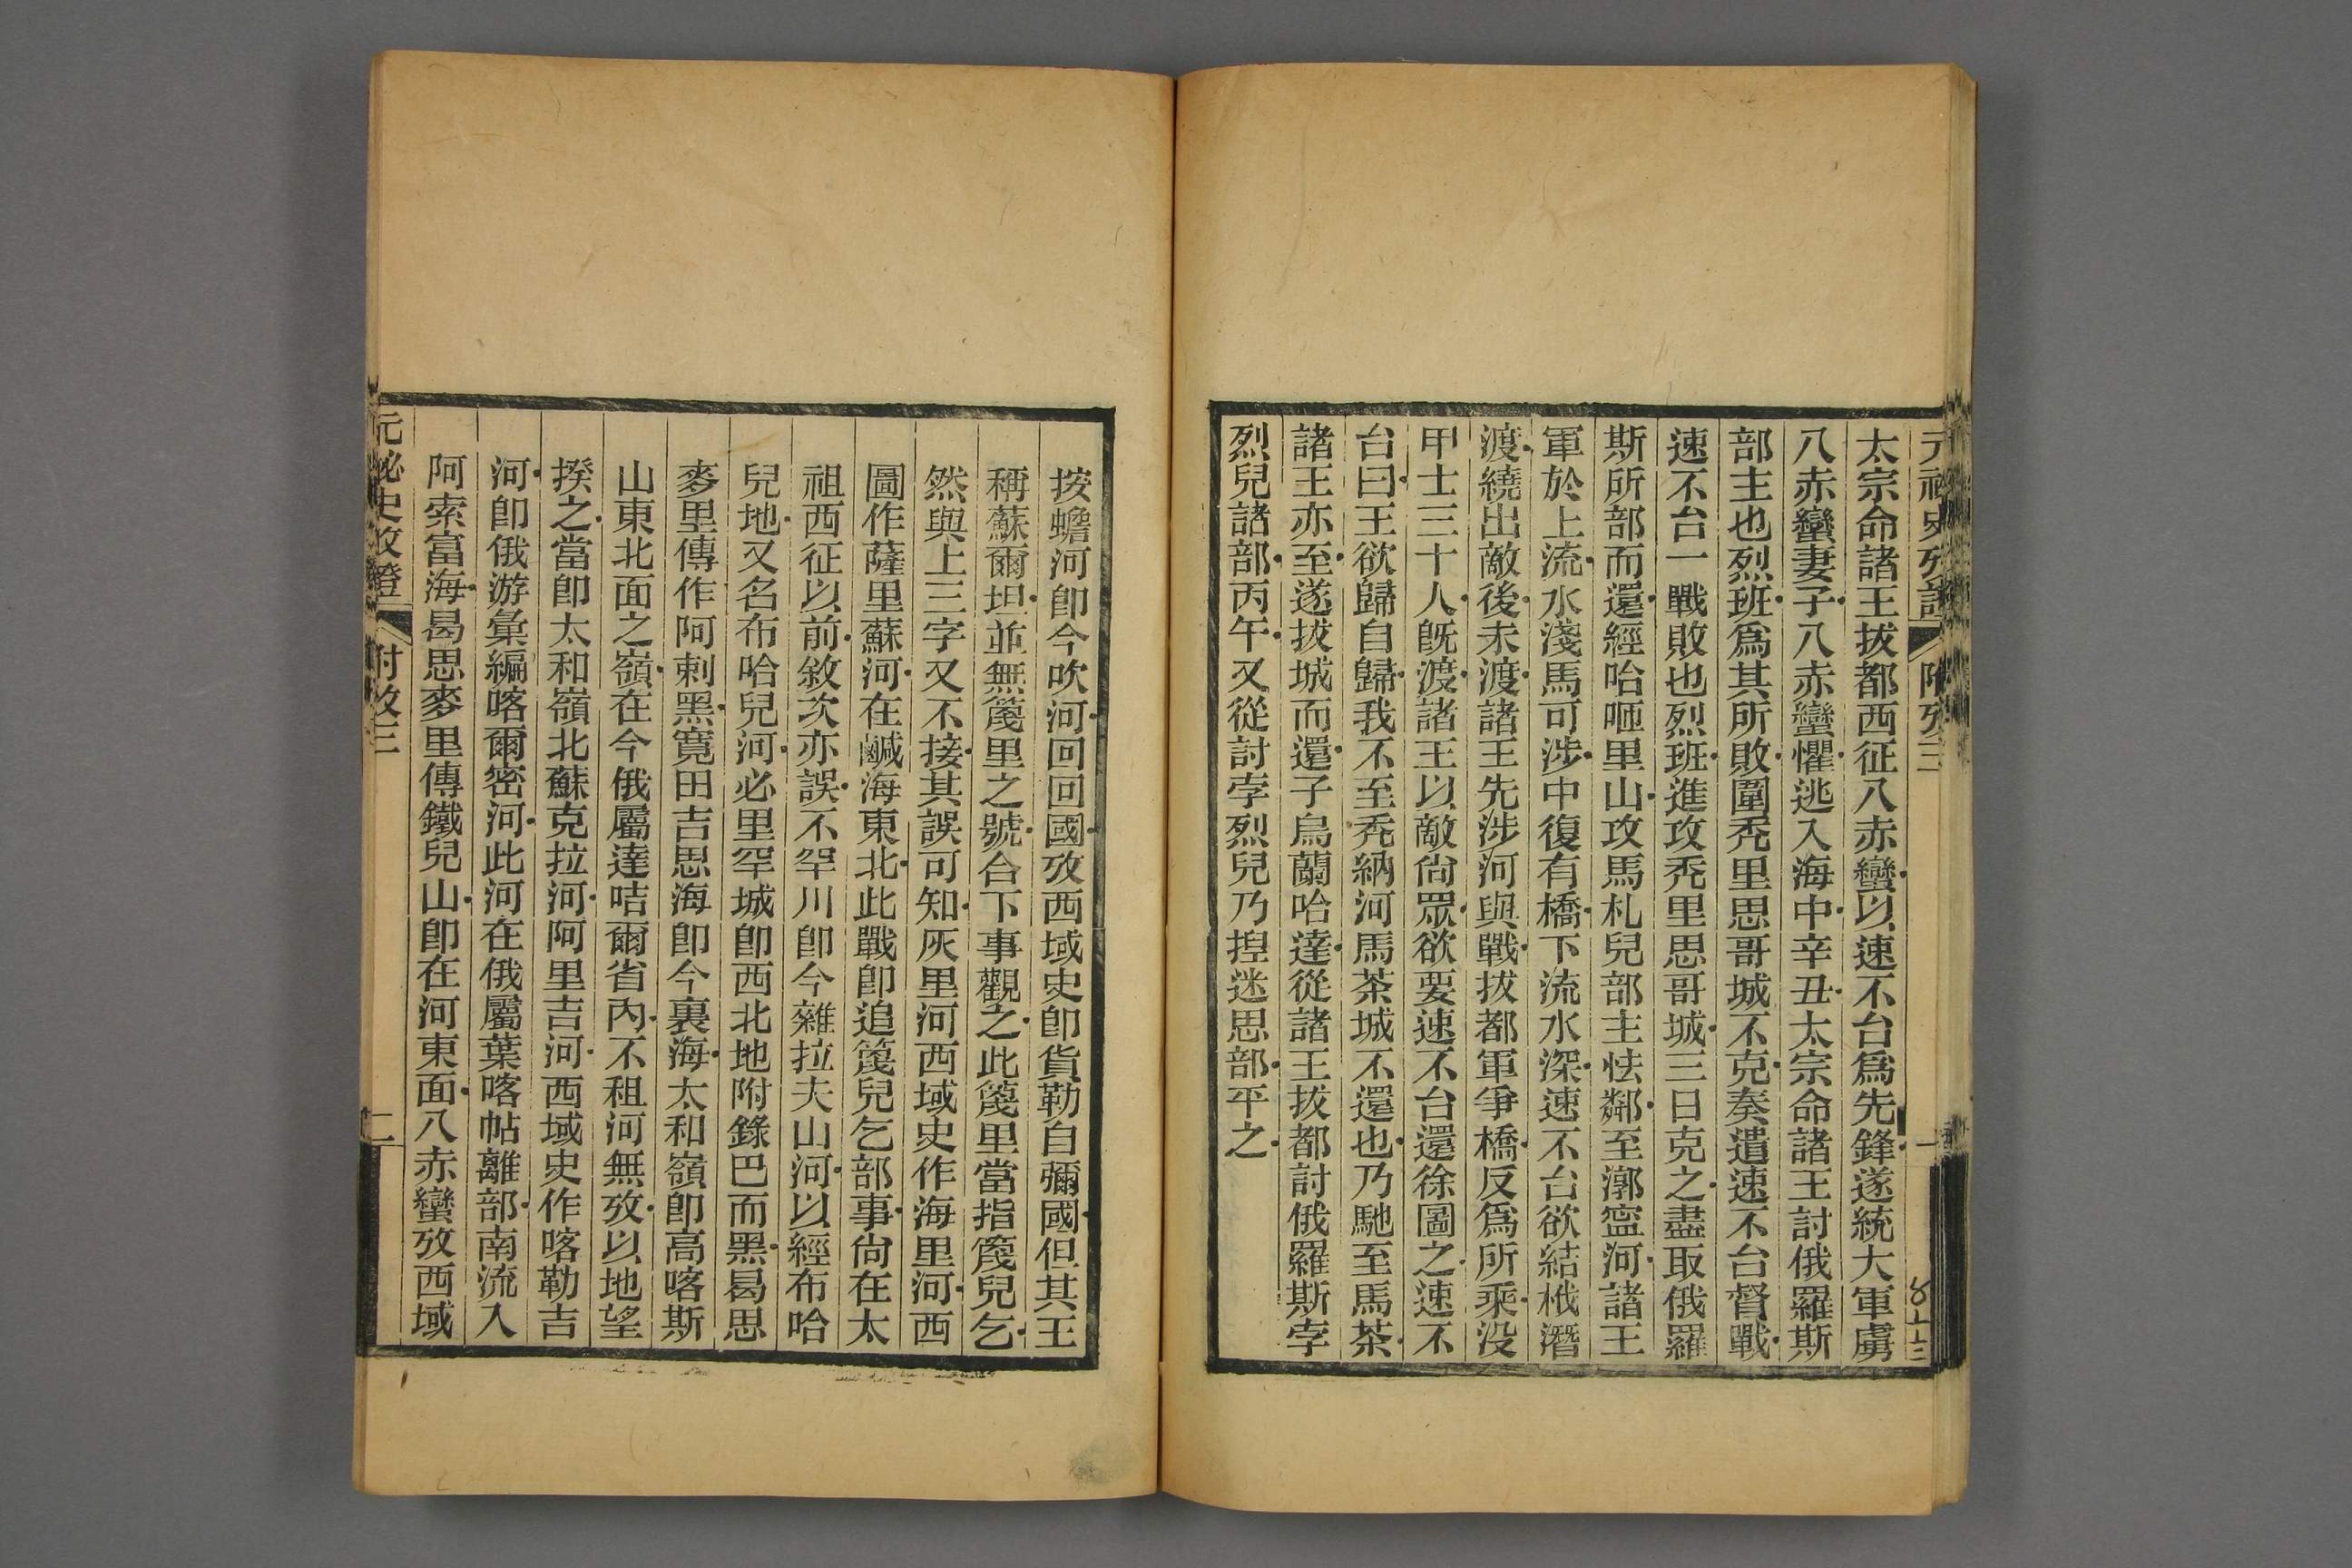 太宗命諸王拔都西征八赤蠻以速不台爲先鋒遂統大軍虜
八赤蠻妻子八赤蠻懼逃入海中辛丑太宗命諸王討俄羅斯
部主也烈班爲其所敗圍禿里思哥城不克奏遣速不台督戰
速不台一戰敗也烈班進攻禿里思哥城三日克之盡取俄羅
斯所部而還經哈咂里山攻馬札兒部主怯鄰至漷寍河諸王
軍於上流水淺馬可涉中復有橋下流水深速不台欲結栰潛
渡繞出敵後未渡諸王先涉河與戰拔都軍爭橋反爲所乘没
甲士三十人旣渡諸王以敵尙眾欲要速不台還徐圖之速不
台曰王欲歸自歸我不至禿納河馬茶城不還也乃馳至馬茶
諸王亦至遂拔城而還子烏蘭哈達從諸王拔都討俄羅斯孛
烈兒諸部丙午又從討孛烈兒乃揑迷思部平之
按蟾河卽今吹河回回國攷西域史卽貨勒自彌國但其王
稱蘇爾坦並無篾里之號合下事觀之此篾里當指篾兒乞
然與上三字又不接其誤可知灰里河西域史作海里河西
圖作薩里蘇河在鹹海東北此戰卽追篾兒乞部事尙在太
祖西征以前敘次亦誤不罕川卽今雜拉夫山河以經布哈
兒地又名布哈兒河必里罕城卽西北地附錄巴而黑曷思
麥里傳作阿剌黑寬田吉思海卽今裏海太和嶺卽高喀斯
山東北面之嶺在今俄屬達咭爾省內不租河無攷以地望
揆之當卽太和嶺北蘇克拉河阿里吉河西域史作喀勒吉
河卽俄游彙編喀爾密河此河在俄屬葉喀帖離部南流入
阿索富海曷思麥里傳鐵兒山卽在河東面八赤蠻攷西域
元祕史攷證 附攷三 二